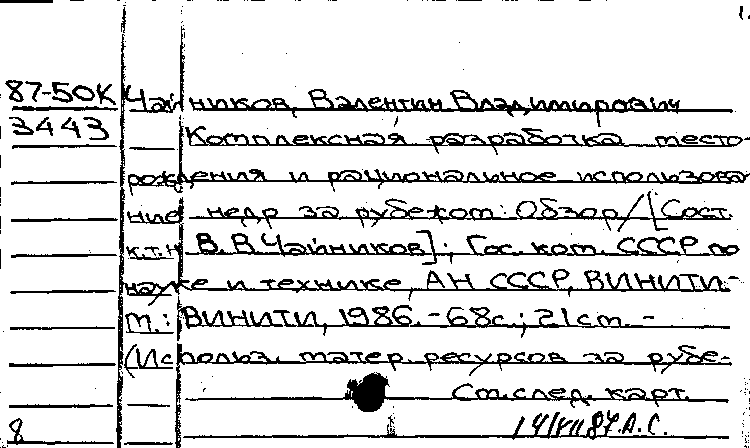 87-50К Чайников, Валентин Владимирович
3443 Комплексная разработка место-
рождения и рациональное использова
ние недр за рубежом: Обзор/[Сост.
к.т.н В.В.Чайников]; Гос. ком. СССР по
науке и технике, АН СССР, ВИНИТИ.-
м.: ВИНИТИ, 1986.-68с.; 21см. -
(Использ. матер. ресурсов за рубе-
См.след. карт.
8 14/VII 87 А.С.